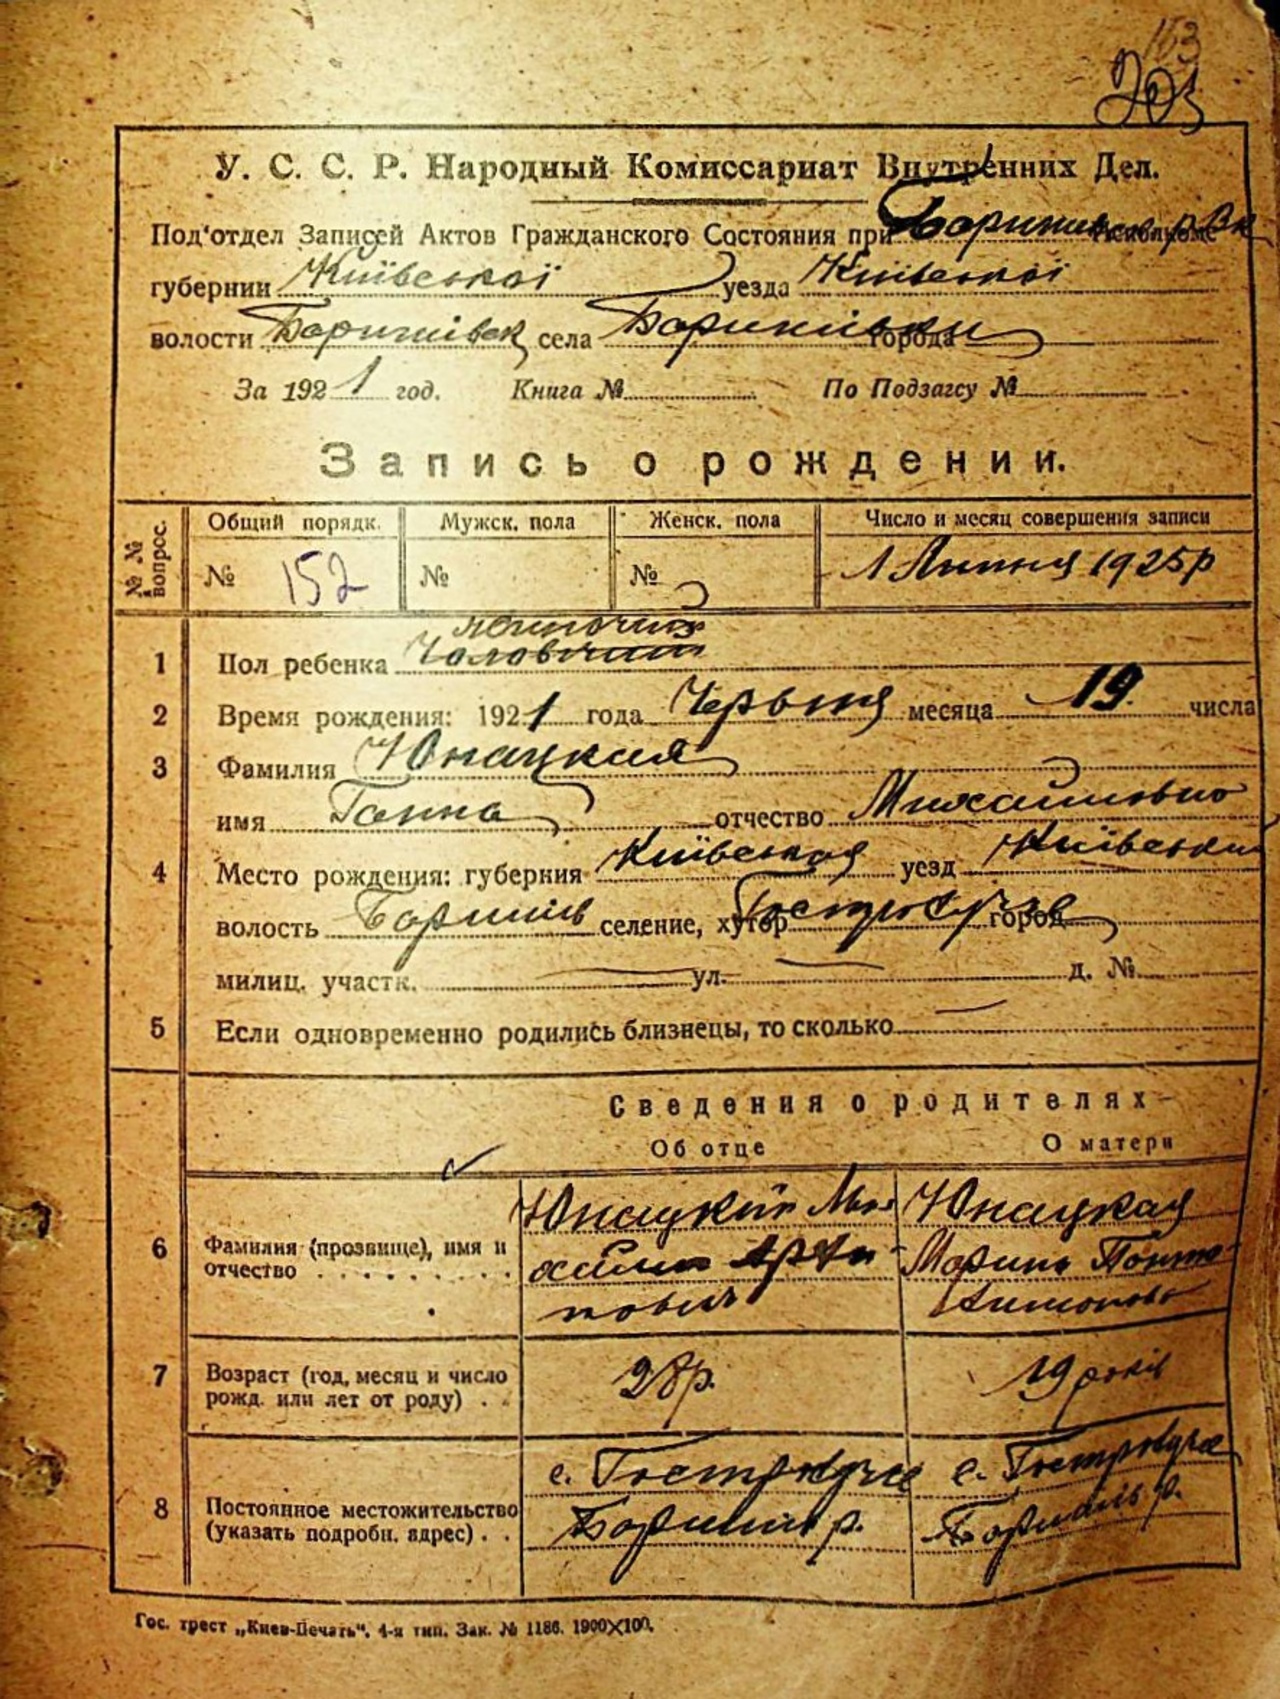 163
203
У. С. С. Р. Народный Комиссариат Внутренних Дел.
Под'отдел Записей Актов Гражданского Состояния при Исполкоме
губернии Київської уезда Київської
волости Баришівск села Баришівки города
За 1921 год. Книга № По Подзагсу №
Запись о рождении.
№ № вопрос.
Общий порядк. Мужск. пола Женск. пола Число и месяц совершения записи
№ 152 № № 1 Липня 1925р
1 Пол ребенка Чоловічий
2 Время рождения: 1921 года Червня месяца 19 числа
3 Фамилия Юнацкая
имя Ганна отчество Михайловно
4 Место рождения: губерния Київська уезд Київський
волость Баришів селение, хутор город
милиц. участк. ул. д. №
5 Если одновременно родились близнецы, то сколько
Сведения о родителях
Об отце О матери
6 Фамилия (прозвище), имя и отчество Юнацкий Ми- Юнацкая
хайло Марина
7 Возраст (год, месяц и число рожд. или лет от роду) 28р. 19 років
8 Постоянное местожительство (указать подробн. адрес) с. с.
Баришів р. Баришів р.
Гос. трест „Киев-Печать“. 4-я тип. Зак. № 1186. 1900×100.